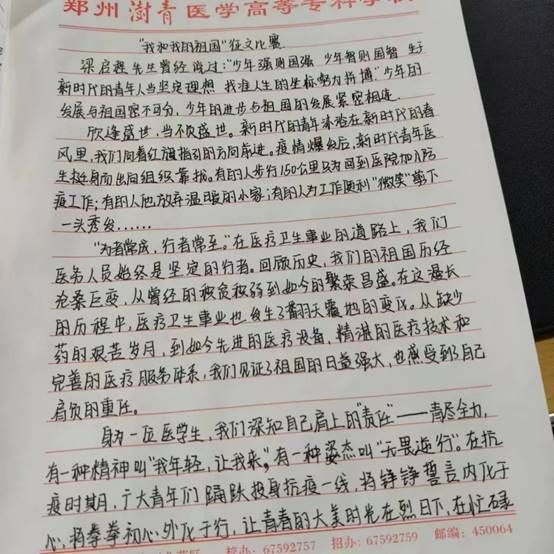 郑州澍青医学高等专科学校
"我和我的祖国"征文比赛
梁启超先生曾经说过:"少年强则国强 少年智则国智 生于
新时代的青年人当坚定理想 找准人生的坐标努力拼搏"少年的
发展与祖国密不可分,少年的进步与祖国的发展紧密相连
欣逢盛世,当不负盛世。新时代的青年沐浴在新时代的春
风里,我们向着红旗指引的方向前进。疫情爆发后,新时代青年医
生挺身而出向组织靠拢。有的人步行150公里只为回到医院加入防
疫工作;有的人他放弃温暖的小家;有的人为工作便利"微笑"剃下
一头秀发……
"为者常成,行者常至。"在医疗卫生事业的道路上,我们
医务人员始终是坚定的行者。回顾历史,我们的祖国历经
沧桑巨变,从曾经的积贫积弱到如今的繁荣昌盛。在这漫长
的历程中,医疗卫生事业也发生了翻天覆地的变化。从缺少
药的艰苦岁月,到如今先进的医疗设备,精湛的医疗技术和
完善的医疗服务体系,我们见证了祖国的日益强大,也感受到了自己
肩负的重任。
身为一位医学生,我们深知自己肩上的"责任"——青尽全力,
有一种精神叫"我年轻,让我来",有一种姿态叫"无畏逆行"。在抗
疫时期,广大青年们踊跃投身抗疫一线,将铮铮誓言内化于
心,将拳拳初心外化于行,让青春的大美时光在烈日下,在忙碌
校办:67592757 招办:67592759 邮编:450064